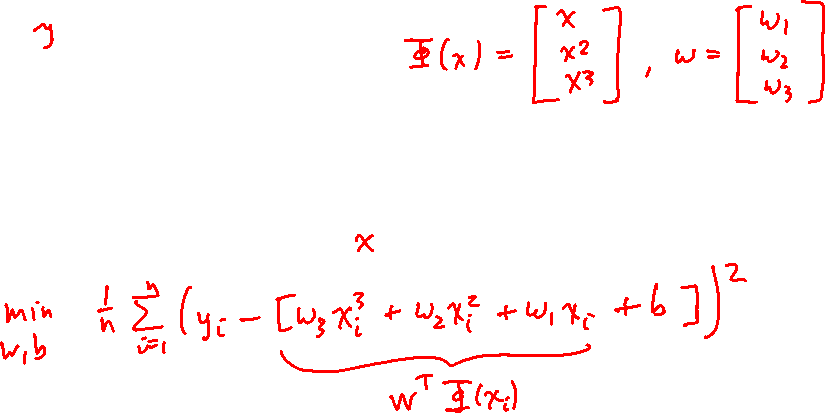 y
Φ(x) = [x x² x³], w = [w₁ w₂ w₃]
x
min w,b 1/n ∑ᵢ₌₁ⁿ (yᵢ − [w₃xᵢ³ + w₂xᵢ² + w₁xᵢ + b])²
wᵀ Φ(xᵢ)